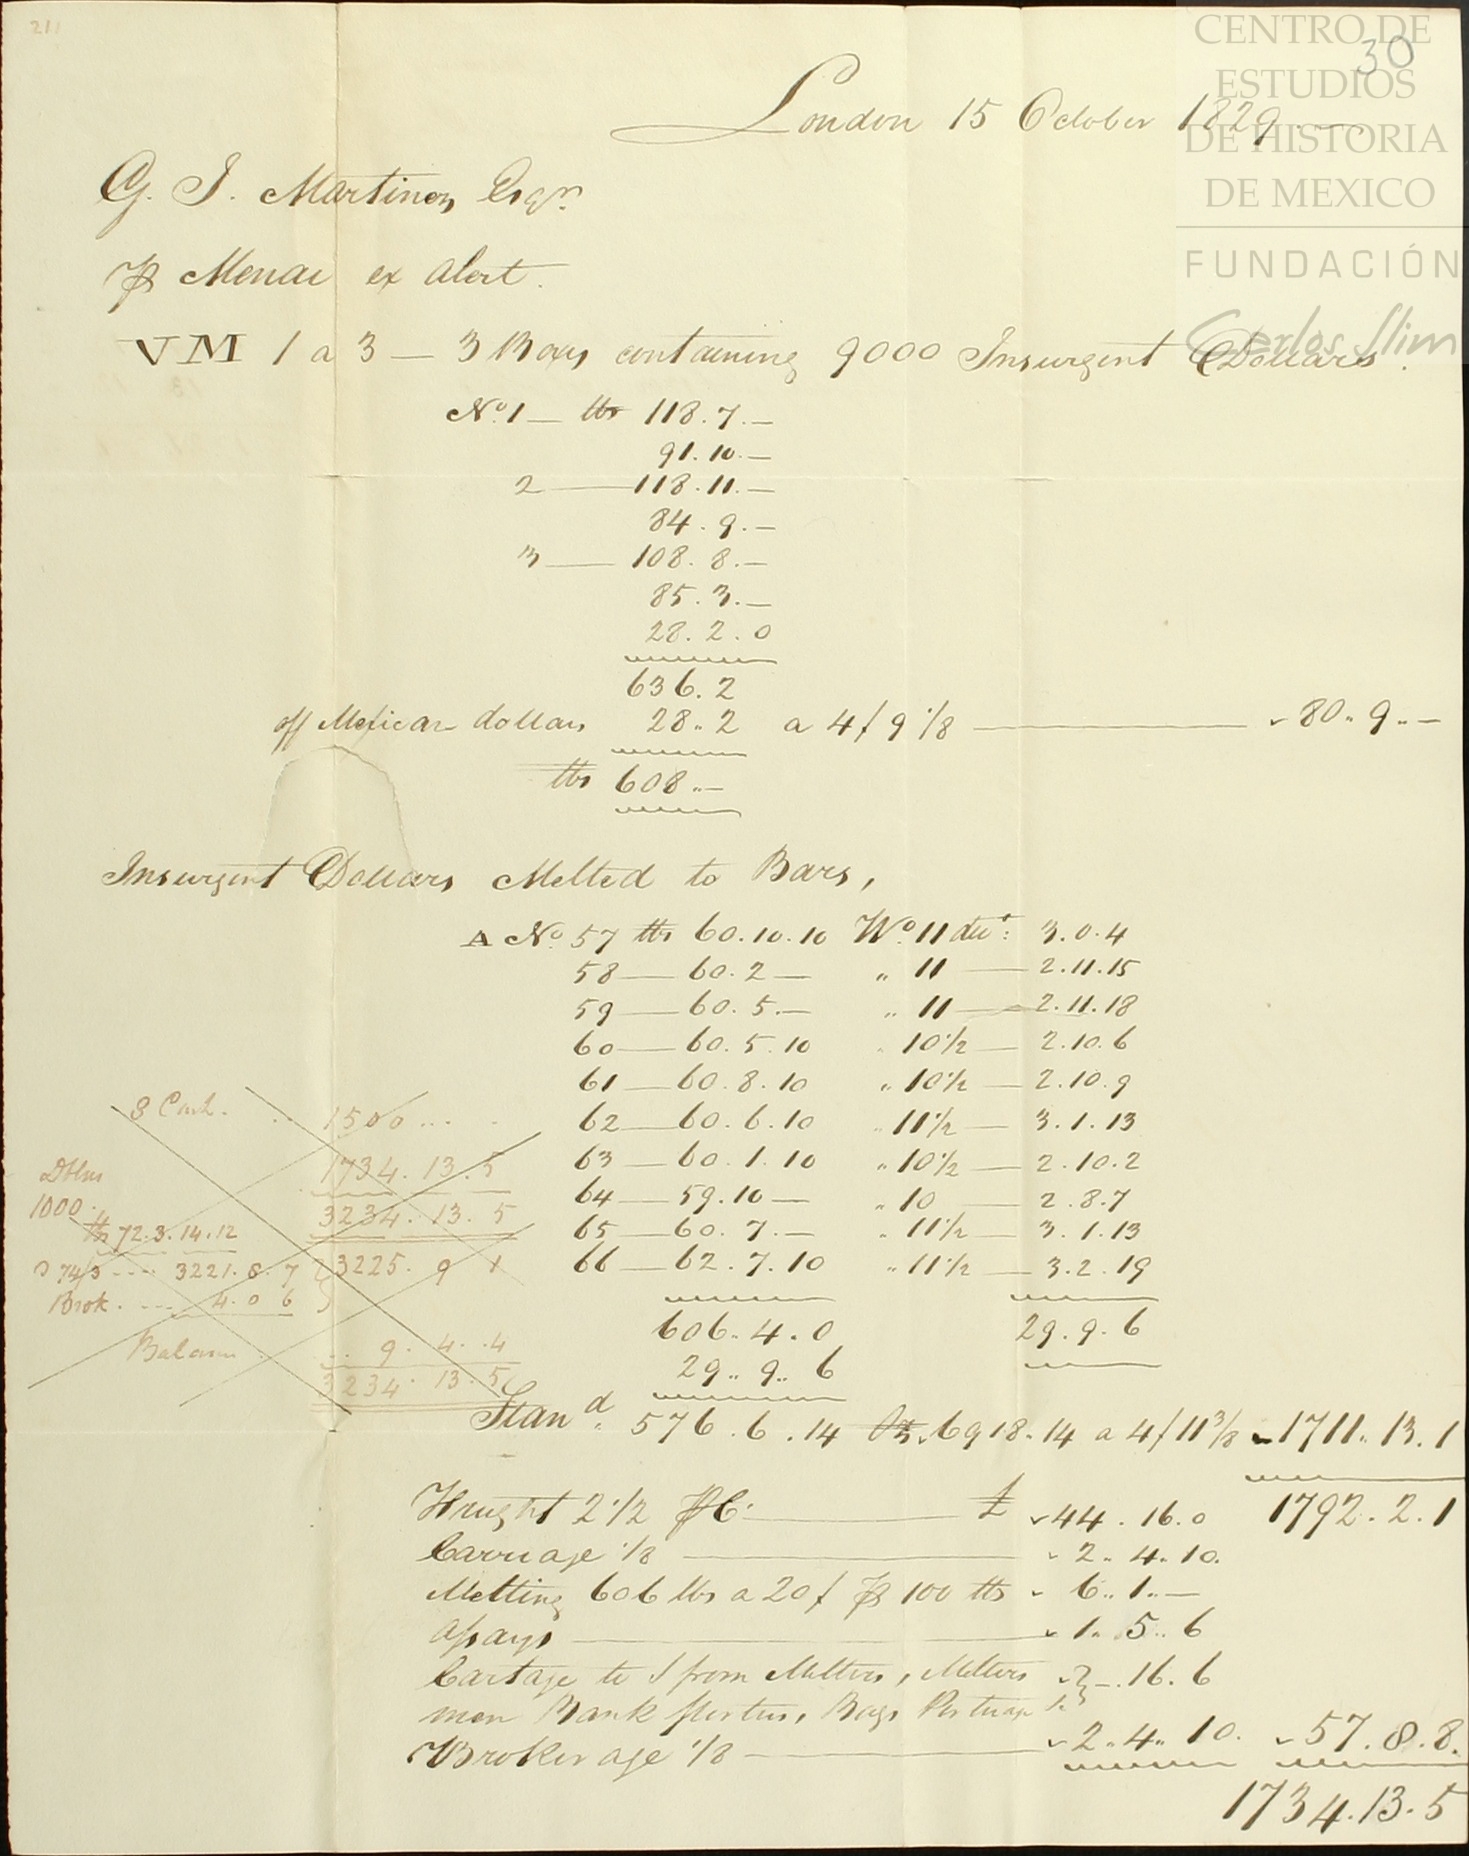 211
CENTRO DE
ESTUDIOS
DE HISTORIA
DE MEXICO
FUNDACIÓN
Carlos Slim
30
London 15 October 1829.
G. J. Martinez Esqr.
⅌ Menai ex Alert.
VM 1 a 3 — 3 Boxes containing 9000 Insurgent Dollars.
No. 1 — lbs 118.7.—
91.10.—
2 — 118.11.—
84.9.—
3 — 108.8.—
85.3.—
28.2.0
636.2
off Mexican dollars 28..2 a 4/9 1/8 — 80..9..—
lbs 608..—
Insurgent Dollars Melted to Bars,
A No. 57 lbs 60.10.10 Wo. 11 dwt: 3.0.4
58 — 60.2 — " 11 — 2.11.15
59 — 60.5.— " 11 — 2.11.18
60 — 60.5.10 " 10 1/2 — 2.10.6
61 — 60.8.10 " 10 1/2 — 2.10.9
62 — 60.6.10 " 11 1/2 — 3.1.13
63 — 60.1.10 " 10 1/2 — 2.10.2
64 — 59.10 — " 10 — 2.8.7
65 — 60.7.— " 11 1/2 — 3.1.13
66 — 62.7.10 " 11 1/2 — 3.2.19
606.4.0 29.9.6
29..9..6
Stand. 576.6.14 Oz. 6918.14 a 4/11 3/8 1711..13.1
Freight 2 1/2 ⅌ C. — £ 44.16.0 1792.2.1
Carriage 1/8 — 2..4..10.
Melting 606 lbs a 20/ ⅌ 100 lbs 6..1..—
Assays — 1..5..6
Cartage to & from Melters, Melters —.16.6
men Bank porters, Bags
Brokerage 1/8 — 2..4..10. 57.8.8.
1734.13.5
1500...
1734.13.5
3234.13.5
Dblns
1000
72.3.14.12
3221.8.7
3225.9.1
Brok. 4.0.6
Balance 9.4..4
3234.13.5